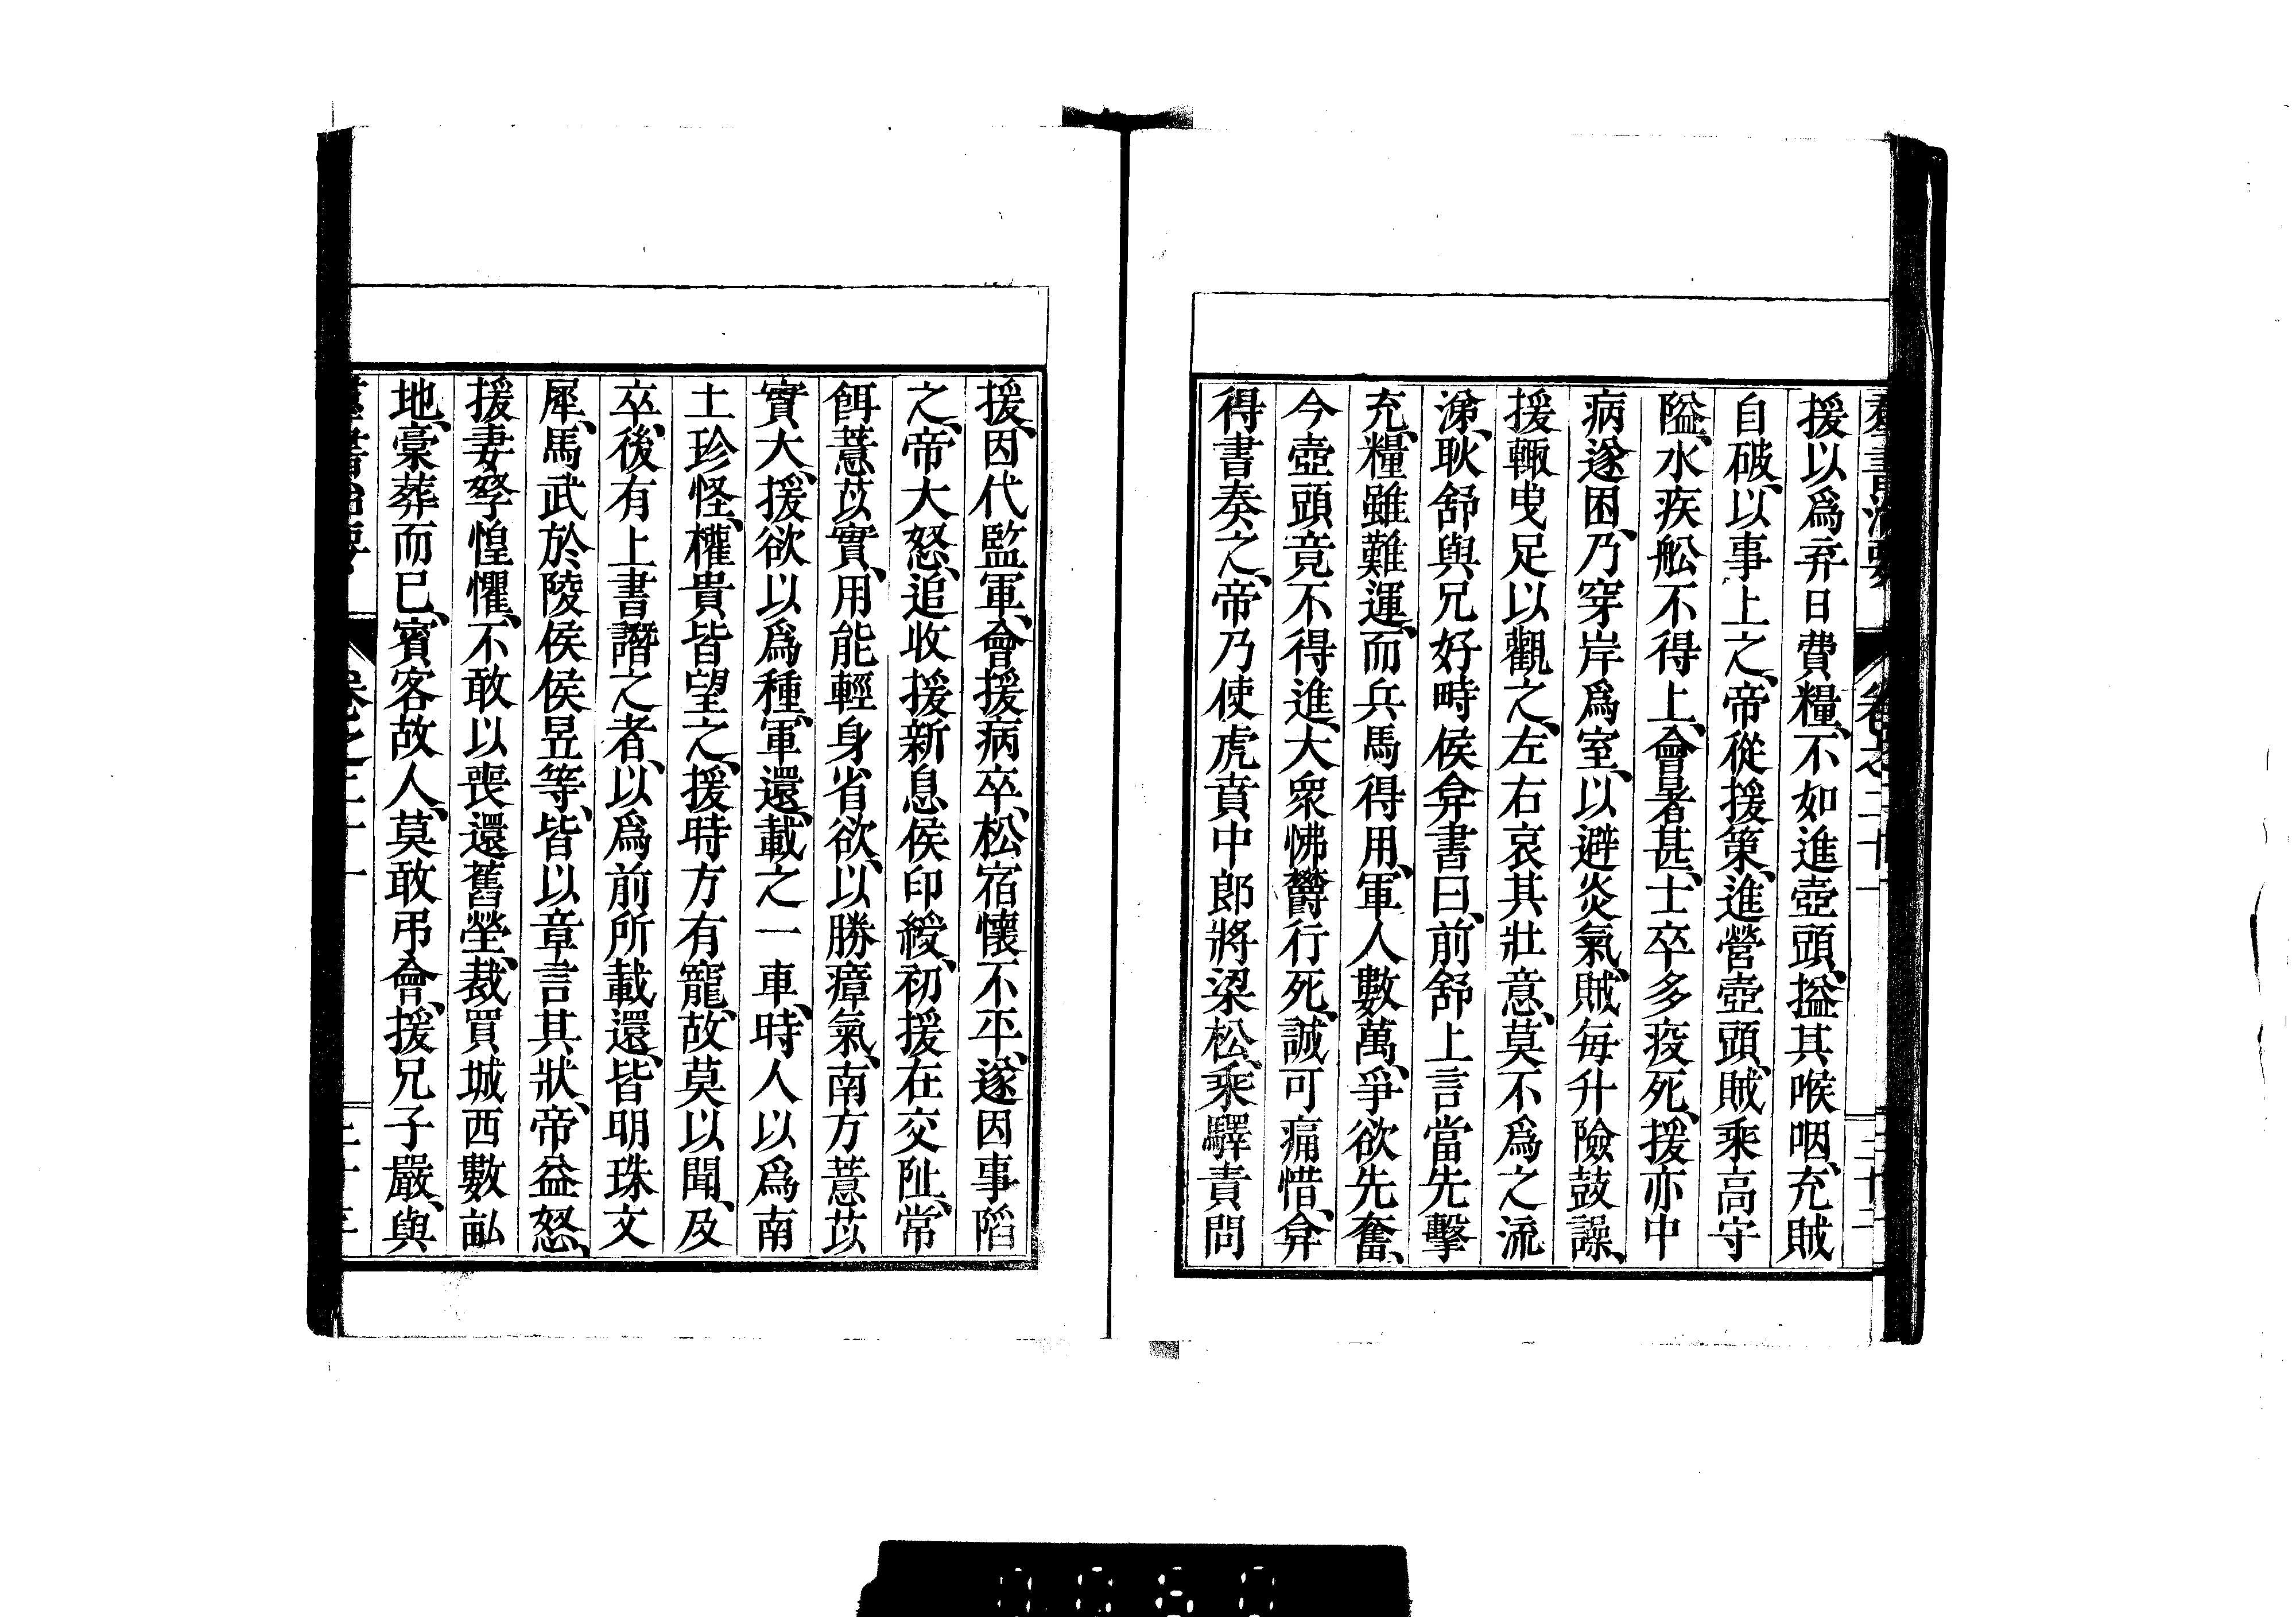 羣書治要 卷之二十一 三十三
援以爲弃日費糧、不如進壺頭、搤其喉咽、充賊
自破、以事上之、帝從援策、進營壺頭、賊乘高守
隘、水疾舩不得上、會暑甚、士卒多疫死、援亦中
病、遂困、乃穿岸爲室、以避炎氣、賊每升險鼓譟、
援輙曳足以觀之、左右哀其壯意、莫不爲之流
涕、耿舒與兄好畤侯弇書曰、前舒上言當先擊
充、糧雖難運、而兵馬得用、軍人數萬、爭欲先奮、
今壺頭竟不得進、大衆怫鬱行死、誠可痛惜、弇
得書奏之、帝乃使虎賁中郎將梁松、乘驛責問
援、因代監軍、會援病卒、松宿懷不平、遂因事陷
之、帝大怒、追收援新息侯印綬、初援在交阯、常
餌薏苡實、用能輕身省欲、以勝瘴氣、南方薏苡
實大、援欲以爲種、軍還、載之一車、時人以爲南
土珍怪、權貴皆望之、援時方有寵、故莫以聞、及
卒、後有上書譖之者、以爲前所載還、皆明珠文
犀、馬武於陵侯侯昱等、皆以章言其狀、帝益怒、
援妻孥惶懼、不敢以喪還舊塋、裁買城西數畝
地、槀葬而已、賓客故人、莫敢弔會、援兄子嚴、與
羣書治要 卷之二十一 三十三